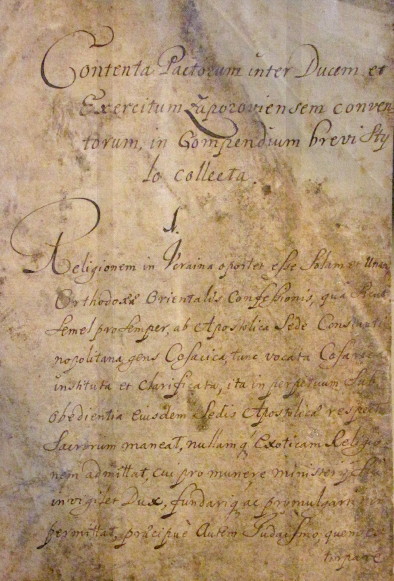 Contenta Pactorum inter Ducem et
Exercitum Zaporoviensem conven
torum, in Compendium brevi Sty
lo collecta.
1.
Religionem in Ucraina oportet esse Solam et Unam
Orthodoxæ Orientalis Confessionis, qua
semel pro semper, ab Apostolica Sede Constanti
nopolitana gens Cosacica, tunc vocata
instituta et clarificata, ita in perpetuum Sub
obedientia eiusdem Sedis Apostolicæ respectu
Sacrorum maneat, nullamq Exoticam Religio
nem admittat, cui pro munere ministerij Sui
invigilet Dux, fundariq ac promulgari
permittat, præcipuè Autem Judaismo, quem
tirpare